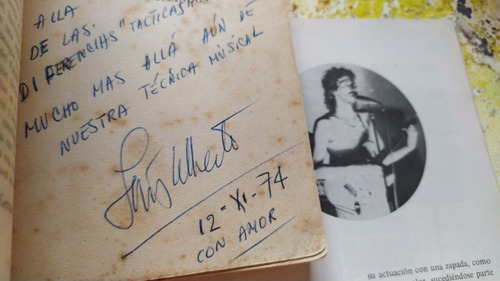 ALLA
DE LAS. "TACTICAS
DIFERENCIAS
MUCHO MAS ALLÁ AÚN DE
NUESTRA TÉCNICA MUSICAL
Luis Alberto
12-XI-74
CON AMOR
su actuación con una zapada, como
sucediéndose parte